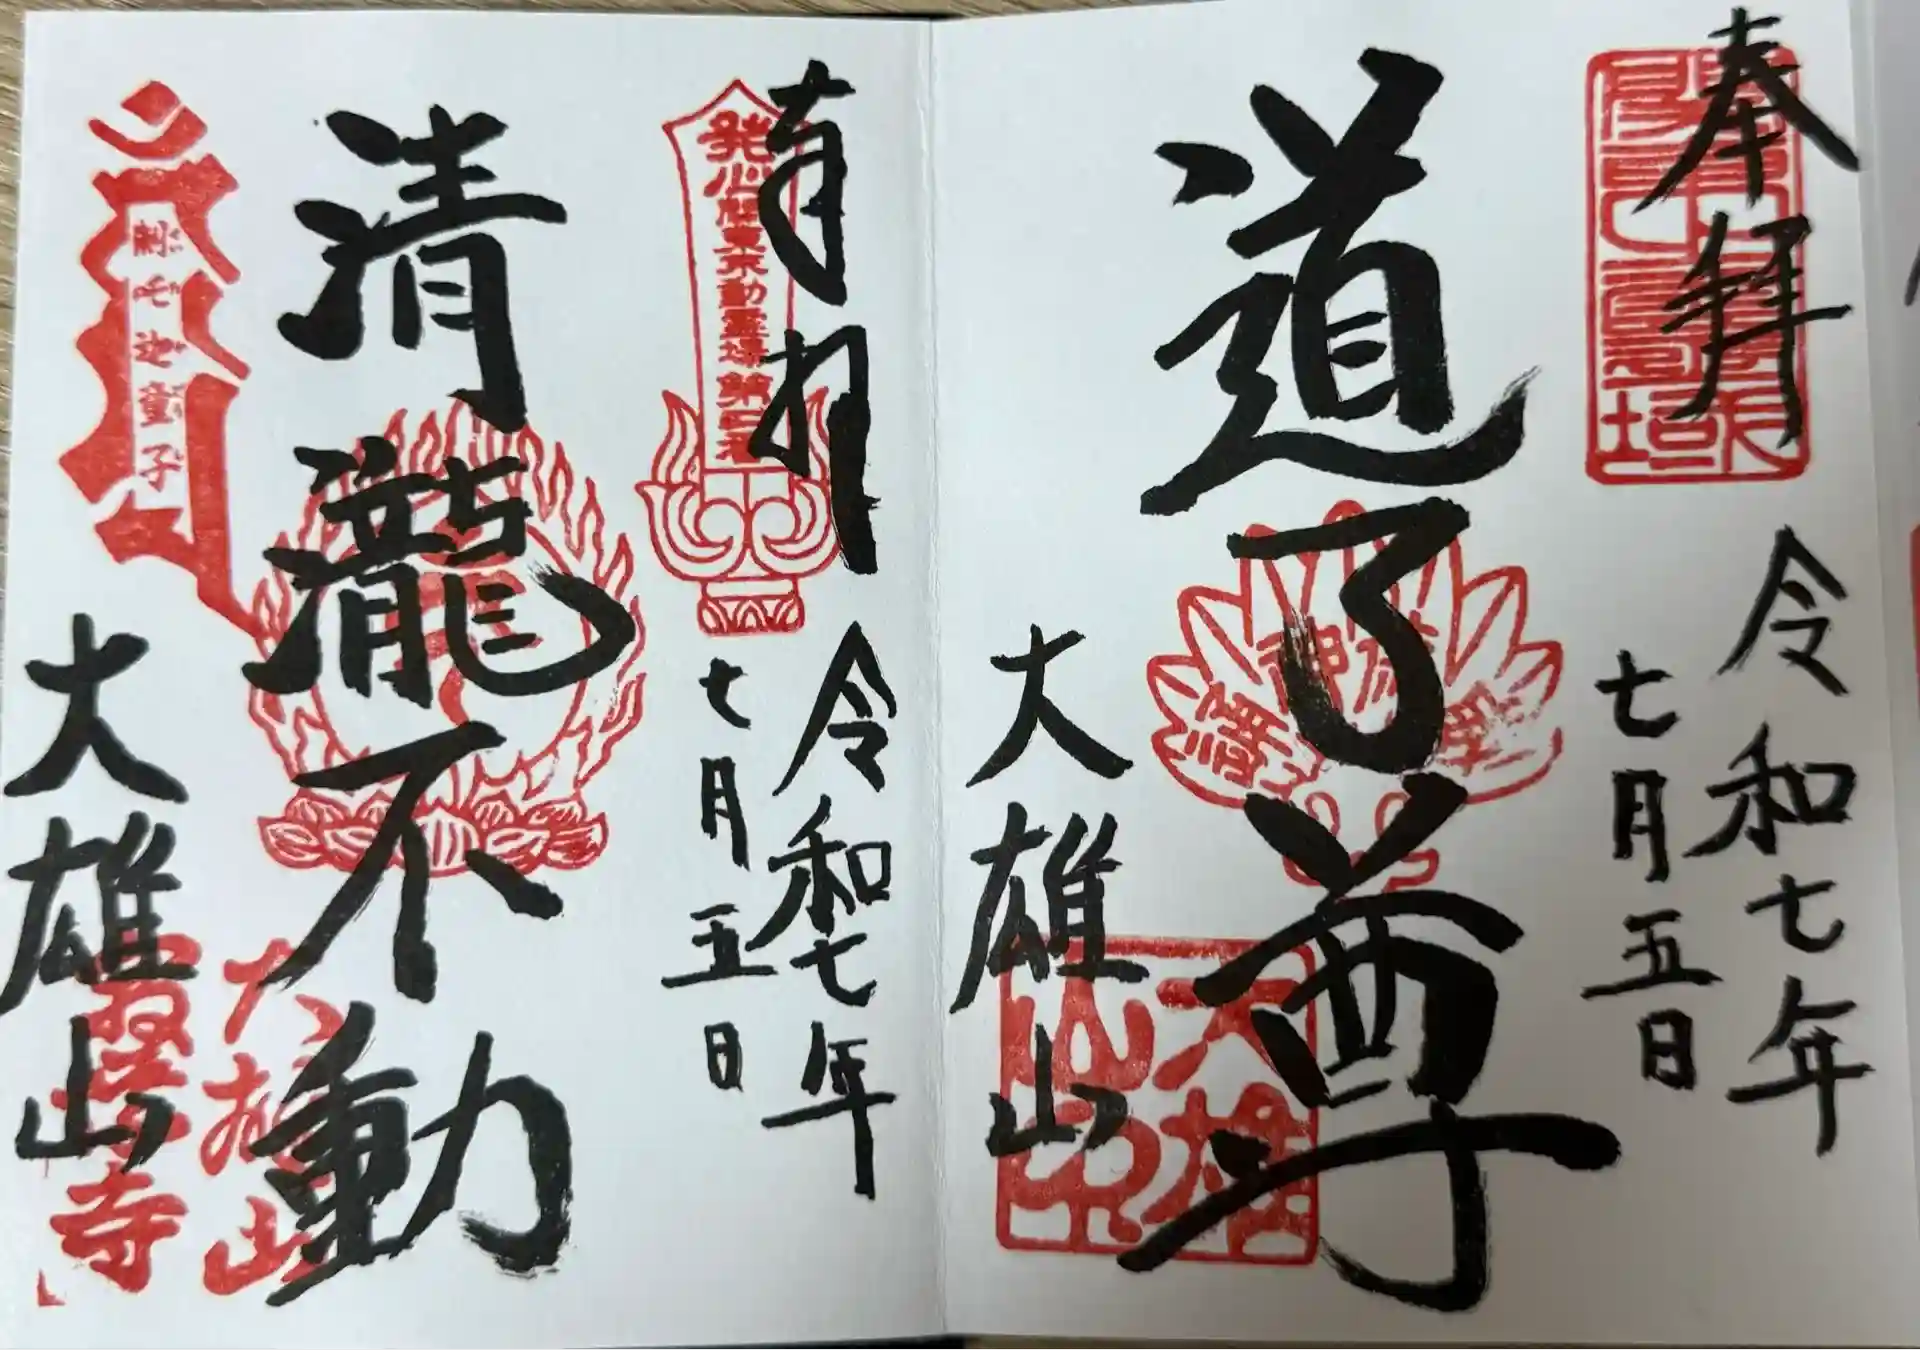 奉拝
令和七年
七月五日
道了尊
大雄山
奉拝
発心関東不動霊場第二番
令和七年
七月五日
清瀧不動
制吒迦童子
大雄山
大雄山
最乗寺